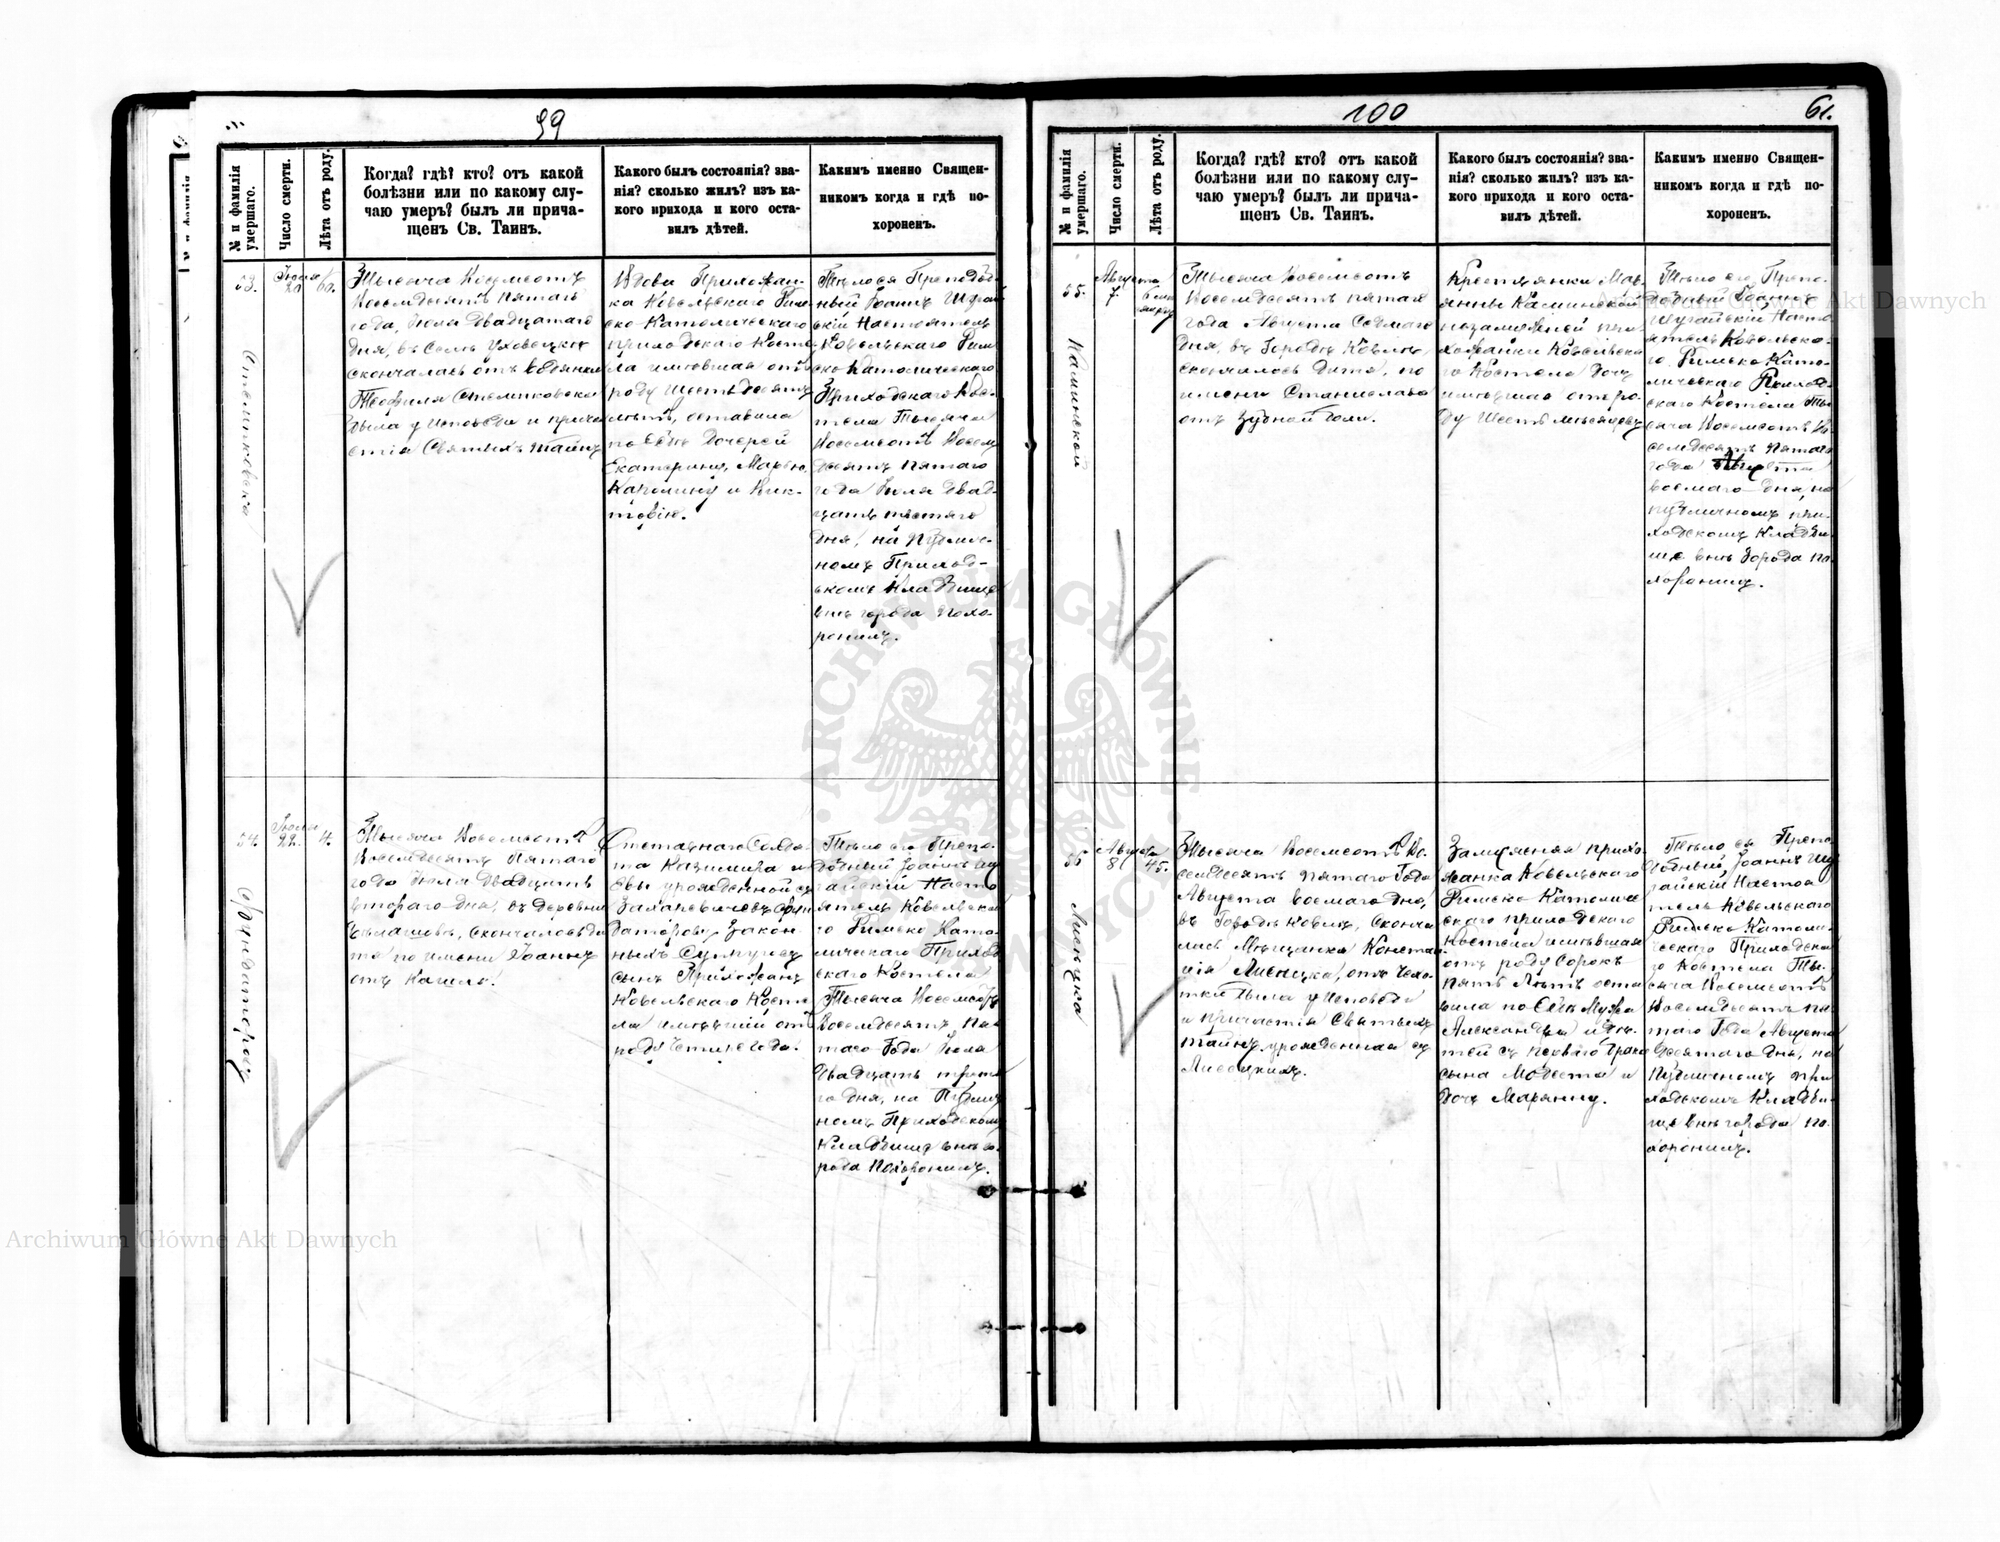 99
№ и фамилія умершаго.
Число смерти.
Лѣта отъ роду.
Когда? гдѣ? кто? отъ какой
болѣзни или по какому слу-
чаю умеръ? былъ ли прича-
щенъ Св. Таинъ.
Какого былъ состоянія? зва-
нія? сколько жилъ? изъ ка-
кого прихода и кого оста-
вилъ дѣтей.
Какимъ именно Священ-
никомъ когда и гдѣ по-
хороненъ.
53.
Іюля
20
60.
Тысяча Восемсотъ
Восемдесятъ пятаго
года, Іюля Двадцатаго
дня, въ селѣ
скончалась отъ водянки
Теофиля Стельмковска
была у Исповѣди и прича
стія Святыхъ Тайнъ
Вдова Прихожан-
ка Ковельскаго Рим
ско-Католическаго
приходскаго Косте
ла имѣвшая отъ
роду шестьдесятъ
лѣтъ, оставила
по себѣ Дочерей
Екатерину, Марью,
Каролину и Вик-
торію.
Преподоб
ный Іоаннъ Шурай
скій Настоятель
Ковельскаго Рим
ско Католическаго
Приходского Кос-
тела Тысяча
Восемсотъ Восем
десятъ пятаго
года Іюля Двад-
цать
дня, на Публич-
номъ Приход-
скомъ Кладбище
внѣ города Похо-
ронилъ.
54.
Іюля
22.
4.
Тысяча Восемсотъ
Восемдесятъ Пятаго
года Іюля Двадцать
втораго дня, въ деревни
скончалось ди
тя по имени Іоаннъ
отъ Кашля.
Солда-
та Казимира и
Евы урожденной съ
закон-
ныхъ Супруговъ
сынъ Прихожанъ
Ковельскаго Косте
ла имѣвшій отъ
роду четыре года.
Тѣло его Препо-
добный Іоаннъ Шу
райскій Насто
ятель Ковельска
го Римско Като
лическаго Приход
скаго Костела
Тысяча Восемсотъ
Восемдесятъ Пя-
таго Года Іюля
Двадцать третя
го дня, на Публич
номъ Приходскомъ
Кладбище внѣ го-
рода Похоронилъ.
100
61.
№ и фамилія умершаго.
Число смерти.
Лѣта отъ роду.
Когда? гдѣ? кто? отъ какой
болѣзни или по какому слу-
чаю умеръ? былъ ли прича-
щенъ Св. Таинъ.
Какого былъ состоянія? зва-
нія? сколько жилъ? изъ ка-
кого прихода и кого оста-
вилъ дѣтей.
Какимъ именно Священ-
никомъ когда и гдѣ по-
хороненъ.
55.
Каминьской
Августа
7.
6
Тысяча Восемсотъ
Восемдесятъ пятаго
года Августа Седмаго
дня, въ Городѣ Ковлѣ,
скончалось Дитя, по
имени Станиславъ
отъ зубной боли.
Крестьянки Мар
янны Каминской
незамужней при-
хожанки Ковельска
го Костела
имѣвшее отъ ро-
ду Шесть мѣсяцевъ
Тѣло его, Препо-
добный Іоаннъ
Шурайскій Насто
ятель Ковельска-
го Римско Като-
лическаго Приход-
скаго Костела Ты-
сяча Восемсотъ Во
семдесятъ пятаго
года Августа
восмаго дня, на
публичномъ при-
ходскомъ Кладби-
ще внѣ Города по-
хоронилъ.
56
Августа
8
45.
Тысяча Восемсотъ Во
семдесятъ пятаго Года
Августа восмаго дня,
въ Городѣ Ковлѣ, Сконча
лась Мѣщанка Констан
ція отъ Чахо-
тки была у Исповѣди
и причастія Святыхъ
Тайнъ урожденная съ
Замужняя прихо
жанка Ковельскаго
Римско Католиче
скаго приходскаго
Костела имѣвшая
отъ роду Сорокъ
пять Лѣтъ оста
вила по себѣ Мужа
Александра и дѣ-
тей съ перваго брака
сына Модеста и
дочь Марянну.
Тѣло ея Препо
добный Іоаннъ Шу
райскій Настоя
тель Ковельскаго
Римско Католи-
ческаго Приходска
го Костела Ты-
сяча Восемсотъ
Восемдесятъ пя-
таго Года Августа
Десятаго дня, на
Публичномъ при
ходскомъ Кладби-
ще внѣ города по-
хоронилъ.
Archiwum Główne Akt Dawnych
Archiwum Główne Akt Dawnych
ARCHIWUM GŁÓWNE AKT DAWNYCH